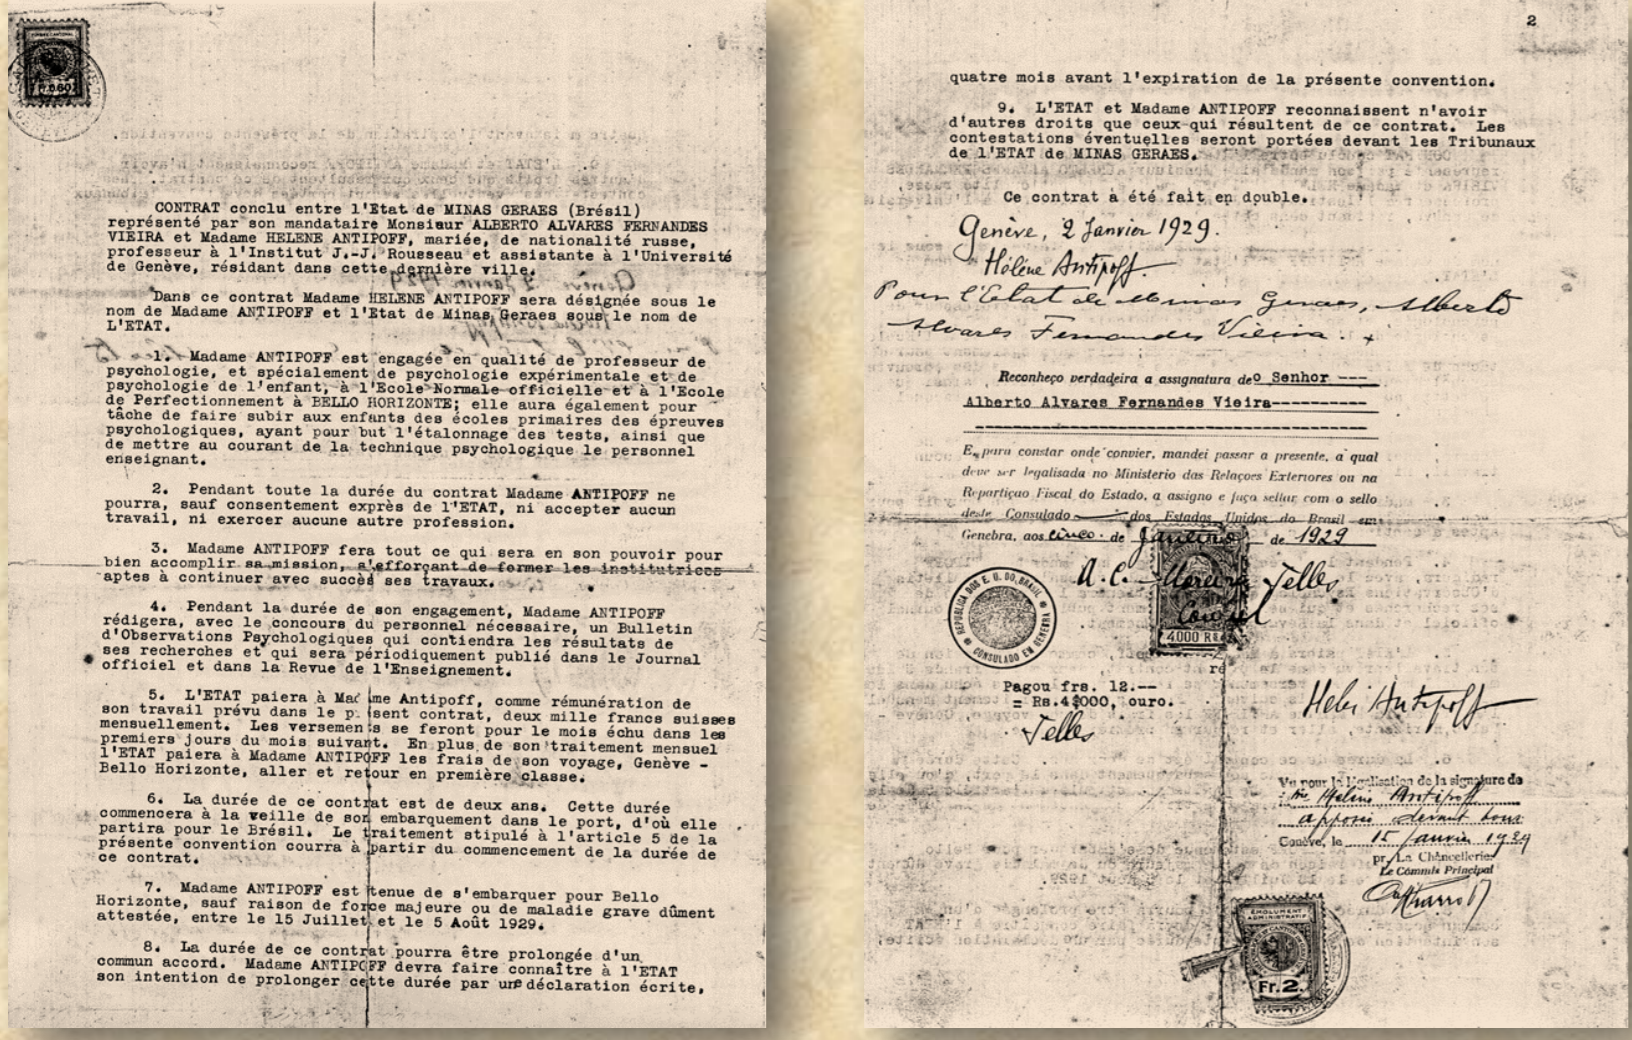 CONTRAT conclu entre l'Etat de MINAS GERAES (Brésil)
représenté par son mandataire Monsieur ALBERTO ALVARES FERNANDES
VIEIRA et Madame HELENE ANTIPOFF, mariée, de nationalité russe,
professeur à l'Institut J.-J. Rousseau et assistante à l'Université
de Genève, résidant dans cette dernière ville.
Dans ce contrat Madame HELENE ANTIPOFF sera désignée sous le
nom de Madame ANTIPOFF et l'Etat de Minas Geraes sous le nom de
L'ETAT.
1. Madame ANTIPOFF est engagée en qualité de professeur de
psychologie, et spécialement de psychologie expérimentale et de
psychologie de l'enfant, à l'Ecole Normale officielle et à l'Ecole
de Perfectionnement à BELLO HORIZONTE; elle aura également pour
tâche de faire subir aux enfants des écoles primaires des épreuves
psychologiques, ayant pour but l'étalonnage des tests, ainsi que
de mettre au courant de la technique psychologique le personnel
enseignant.
2. Pendant toute la durée du contrat Madame ANTIPOFF ne
pourra, sauf consentement exprès de l'ETAT, ni accepter aucun
travail, ni exercer aucune autre profession.
3. Madame ANTIPOFF fera tout ce qui sera en son pouvoir pour
bien accomplir sa mission, s'efforçant de former les institutrices
aptes à continuer avec succès ses travaux.
4. Pendant la durée de son engagement, Madame ANTIPOFF
rédigera, avec le concours du personnel nécessaire, un Bulletin
d'Observations Psychologiques qui contiendra les résultats de
ses recherches et qui sera périodiquement publié dans le Journal
officiel et dans la Revue de l'Enseignement.
5. L'ETAT paiera à Madame Antipoff, comme rémunération de
son travail prévu dans le présent contrat, deux mille francs suisses
mensuellement. Les versements se feront pour le mois échu dans les
premiers jours du mois suivant. En plus de son traitement mensuel
l'ETAT paiera à Madame ANTIPOFF les frais de son voyage, Genève -
Bello Horizonte, aller et retour en première classe.
6. La durée de ce contrat est de deux ans. Cette durée
commencera à la veille de son embarquement dans le port, d'où elle
partira pour le Brésil. Le traitement stipulé à l'article 5 de la
présente convention courra à partir du commencement de la durée de
ce contrat.
7. Madame ANTIPOFF est tenue de s'embarquer pour Bello
Horizonte, sauf raison de force majeure ou de maladie grave dûment
attestée, entre le 15 Juillet et le 5 Août 1929.
8. La durée de ce contrat pourra être prolongée d'un
commun accord. Madame ANTIPOFF devra faire connaître à l'ETAT
son intention de prolonger cette durée par une déclaration écrite,
2
quatre mois avant l'expiration de la présente convention.
9. L'ETAT et Madame ANTIPOFF reconnaissent n'avoir
d'autres droits que ceux-qui résultent de ce contrat. Les
contestations éventuelles seront portées devant les Tribunaux
de l'ETAT de MINAS GERAES.
Ce contrat a été fait en double.
Genève, 2 Janvier 1929.
Hélène Antipoff
Pour l'Etat de Minas Geraes, Alberto
Alvares Fernandes Vieira.
Reconheço verdadeira a assignatura de o Senhor ---
Alberto Alvares Fernandes Vieira----------
E, para constar onde convier, mandei passar a presente, a qual
deve ser legalisada no Ministerio das Relações Exteriores ou na
Repartiçao Fiscal do Estado, a assigno e faço sellar com o sello
deste Consulado dos Estados Unidos do Brasil em
Genebra, aos cinco de Janeiro de 1929
A. C. Moreira Telles
Consul
REPUBLICA DOS E. U. DO BRASIL
CONSULADO EM GENEBRA
4000 RS
Pagou frs. 12.--
= Rs.4$000, ouro.
Telles
Antipoff
Vu pour la légalisation de la signature de
Mme Hélène Antipoff
apposée devant nous
Genève, le 15 Janvier 1929
pr. La Chancellerie:
Le Commis Principal
EMOLUMENT
ADMINISTRATIF
Fr. 2.